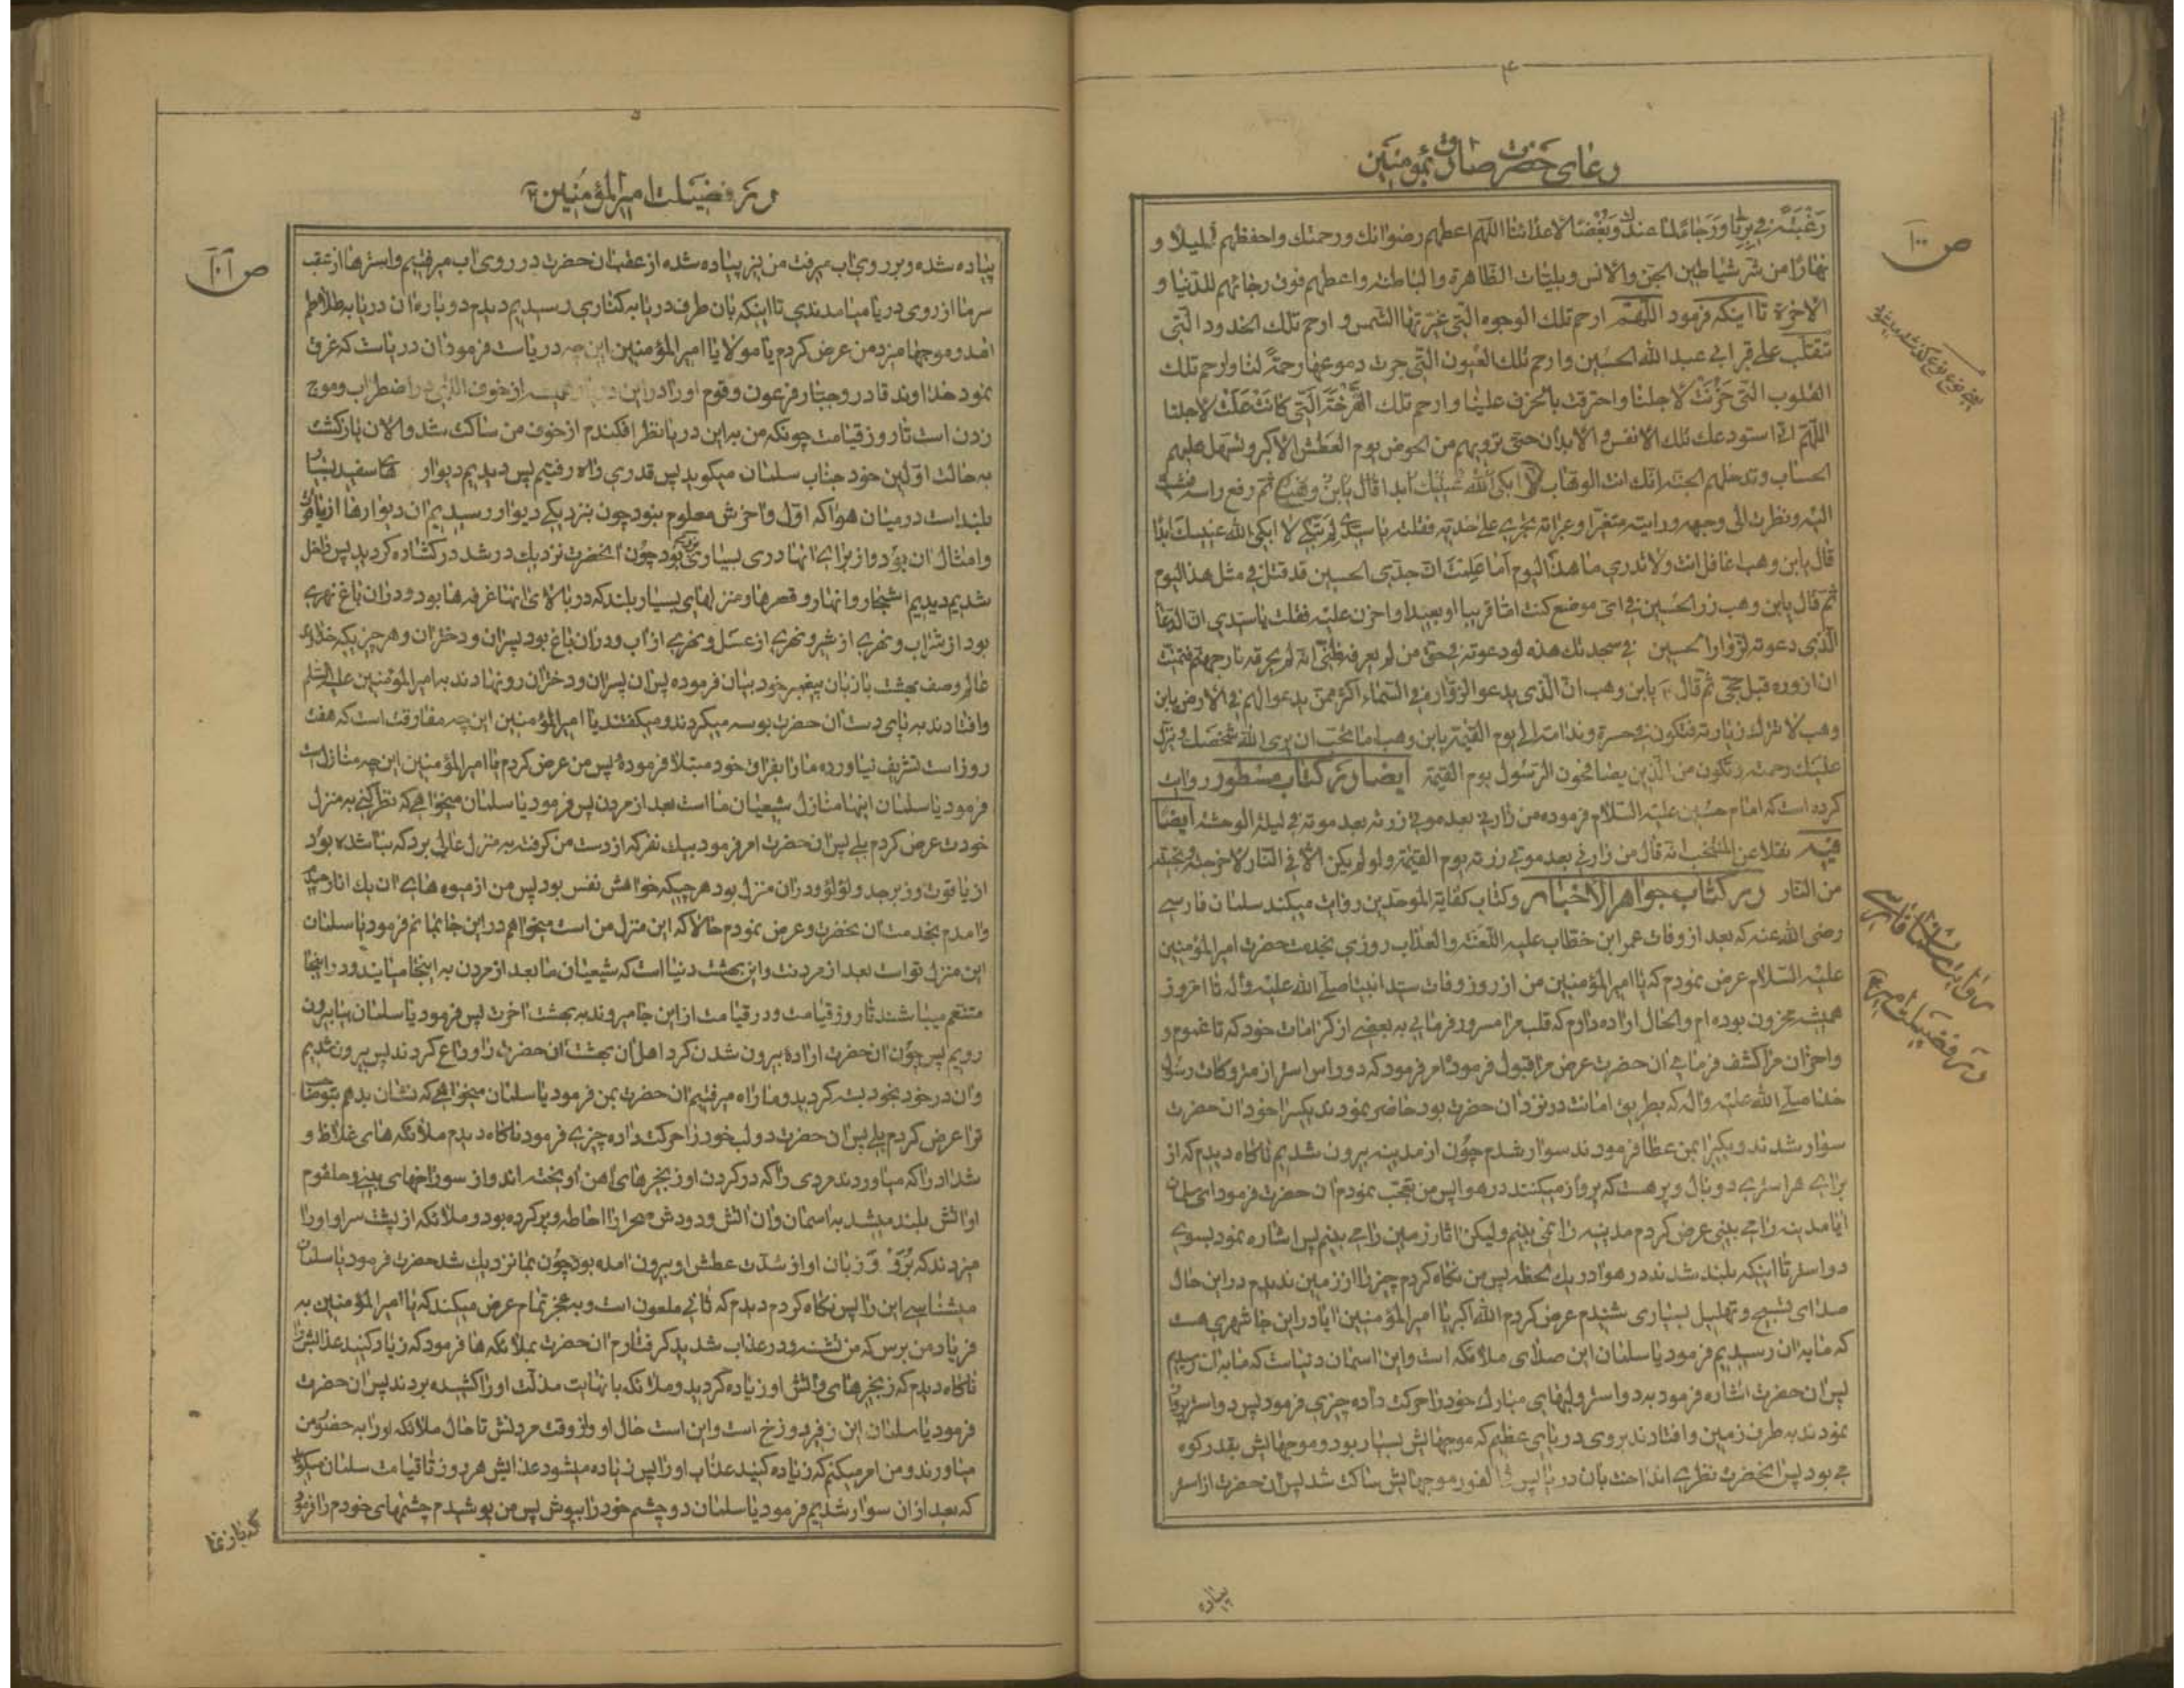 ۴
دعای حضرت صادق بمؤمنین
ص ۱۰۰
رغبة فی برنا ورجاء لما عندک وبغضا لاعدائنا اللهم اعطهم رضوانک ورحمتک واحفظهم لیلا و
نهارا من شر شیاطین الجن والانس وبلیات الظاهرة والباطنة واعطهم فوق رجائهم للدنیا و
الاخرة تا اینکه فرمود اللهم ارحم تلک الوجوه التی غیرتها الشمس و ارحم تلک الخدود التی
تتقلب علی قبر ابی عبد الله الحسین وارحم تلک العیون التی جرت دموعها رحمة لنا وارحم تلک
القلوب التی حزنت لاجلنا واحترقت بالحزن علینا وارحم تلک الصرخة التی کانت لاجلنا
اللهم انی استودعک تلک الانفس والابدان حتی ترویهم من الحوض یوم العطش الاکبر وتسهل علیهم
الحساب وتدخلهم الجنة انک انت الوهاب لا ابکی الله عینیک ابدا قال یابن وهب ثم رفع راسه
الیه ونظرت الی وجهه ورایته متغیرا وعبراته تجری علی خدیه فقلت یا سیدی لم تبکی لا ابکی الله عینیک ابدا
قال یابن وهب اغافل انت ولا تدری ما هذا الیوم اما علمت ان جدی الحسین قد قتل فی مثل هذا الیوم
ثم قال یابن وهب زر الحسین فی ای موضع کنت اما قریبا او بعیدا واحزن علیه فقلت یا سیدی ان الدعاء
الذی دعوته لزوار الحسین فی سجدتک هذه لو دعوته فی حق من لم یعرفه ظنی انه لم یحرقه نار جهنم فتمنیت
ان ازوره قبل حجی ثم قال یابن وهب ان الذی یدعو الزواره فی السماء اکثر ممن یدعوا لهم فی الارض یابن
وهب لا تترک زیارته فتکون فی حسرة وندامة الی یوم القیمة یابن وهب اما تحب ان یری الله شخصک وینزل
علیک رحمته وتکون من الذین یصافحون الرسول یوم القیمة ایضا در کتاب مسطور روایت
کرده است که امام حسین علیه السلام فرموده من زارنی بعد موتی زرته بعد موته فی لیلة الوحشة ایضا
فیه نقلا عن المنتخب انه قال من زارنی بعد موتی زرته یوم القیمة ولو لم یکن الا فی النار لاخرجته
من النار در کتاب جواهر الاخبار وکتاب کفایة الموحدین روایت میکند سلمان فارسی
رضی الله عنه که بعد از وفات عمر ابن خطاب علیه اللعنة والعذاب روزی بخدمت حضرت امیر المؤمنین
علیه السلام عرض نمودم که یا امیر المؤمنین من از روز وفات سید انبیا صلی الله علیه واله تا امروز
همیشه محزون بوده ام والحال اراده دارم که قلب مرا مسرور فرمائی به بعضی از کرامات خود که تا غموم و
واحزان مرا کشف فرمائی ان حضرت عرض مرا قبول فرموده امر فرمود که دو راس استر از متروکات رسول
خدا صلی الله علیه واله که بطریق امانت در نزد ان حضرت بود حاضر نمودند یکیرا خود ان حضرت
سوار شدند ویکیرا بمن عطا فرمودند سوار شدم چون از مدینه بیرون شدیم ناکاه دیدم که از
برای هر استری دو بال وپر هست که پرواز میکنند در هوا پس من تعجب نمودم ان حضرت فرمود ای سلمان
ایا مدینه را می بینی عرض کردم مدینه را نمی بینم ولیکن اثار زمین را می بینم پس اشاره نمود بسوی
دو استر تا اینکه بلند شدند در هوا در یک لحظه پس من نکاه کردم چیزی را از زمین ندیدم در این حال
صدای تسبیح وتهلیل بسیاری شنیدم عرض کردم الله اکبر یا امیر المؤمنین ایا در این جا شهری هست
که ما به ان رسیدیم فرمود یا سلمان این صدای ملائکه است واین اسمان دنیاست که ما به ان رسیدیم
پس ان حضرت اشاره فرمود به دو استر ولبهای مبارک خود را حرکت داده چیزی فرمود پس دو استر پرواز
نمودند به طرف زمین وافتادند بروی دریای عظیم که موجهایش بسیار بود وموجهایش بقدر کوه
می بود پس انحضرت نظری انداخت بان دریا پس فی الفور موجهایش ساکت شد پس ان حضرت از استر
روایت سلمان فارسی
در فضیلت امیر
پیاده
۵
در فضیلت امیر المؤمنین ع
ص ۱۰۱
پیاده شده وبر روی اب میرفت من نیز پیاده شده از عقب ان حضرت در روی اب میرفتیم واسترها از عقب
سر ما از روی دریا میامدندی تا اینکه بان طرف دریا به کناری رسیدیم دیدم دوباره ان دریا به طلاطم
امد وموجها میزد من عرض کردم یا مولای یا امیر المؤمنین این چه دریاست فرمود ان دریاست که غرق
نمود خداوند قادر وجبار فرعون وقوم او را در این دریا همیشه از خوف الهی در اضطراب وموج
زدن است تا روز قیامت چونکه من به این دریا نظر افکندم از خوف من ساکت شد والان بازکشت
به حالت اولین خود جناب سلمان میکوید پس قدری راه رفتیم پس دیدیم دیوارهای سفید بسیار
بلند است در میان هوا که اول واخرش معلوم نبود چون نزدیکی دیوار رسیدیم ان دیوارها از یاقوت
وامثال ان بود واز برای انها دری بسیاری بزرک بود چون انحضرت نزدیک در شد در کشاده کردید پس داخل
شدیم دیدیم اشجار وانهار وقصرها ومنزلهای بسیار بلند که در بالای انها غرفه ها بود ودران باغ نهری
بود از شراب ونهری از شیر ونهری از عسل ونهری از اب ودران باغ بود پسران ودختران وهر چیزیکه خداوند
عالم وصف بهشت با زبان پیغمبر خود بیان فرموده پس ان پسران ودختران رو نهادند به امیر المؤمنین علیه السلام
وافتادند به پای دست ان حضرت بوسه میکردند ومیکفتند یا امیر المؤمنین این چه مفارقت است که هفت
روز است تشریف نیاورده ما را بفراق خود مبتلا فرموده پس من عرض کردم یا امیر المؤمنین این چه منازل است
فرمود یا سلمان اینها منازل شیعیان ما است بعد از مردن پس فرمود یا سلمان میخواهی که نظر کنی به منزل
خودت عرض کردم بلی پس ان حضرت امر فرمود بیک نفر که از دست من کرفته به منزل عالی برد که بنا شده بود
از یاقوت وزبرجد ولؤلؤ ودران منزل بود هر چیکه خواهش نفس بود پس من از میوه های ان یک انار چیده
وامدم بخدمت ان حضرت وعرض نمودم حالا که این منزل من است میخواهم در این جا بمانم فرمود یا سلمان
این منزل تو است بعد از مردنت واین بهشت دنیا است که شیعیان ما بعد از مردن به اینجا میایند ودر اینجا
متنعم میباشند تا روز قیامت ودر قیامت از این جا میروند به بهشت اخرت پس فرمود یا سلمان بیا بیرون
رویم پس چون ان حضرت اراده بیرون شدن کرد اهل ان بهشت ان حضرت را وداع کردند پس بیرون شدیم
وان در خود بخود بسته کردید وما راه میرفتیم ان حضرت بمن فرمود یا سلمان میخواهی که نشان بدهم بتو صاحب
ترا عرض کردم بلی پس ان حضرت دو لب خود را حرکت داده چیزی فرمود ناکاه دیدم ملائکه های غلاظ و
شداد را که میاوردند مردی را که در کردن او زنجیرهای اهن اویخته اند واز سوراخهای بینی وحلقوم
او اتش بلند میشد به اسمان وان اتش ودودش صحرا را احاطه وپر کرده بود وملائکه از پشت سر او او را
میزدند که برو و زبان او از شدت عطش او بیرون امده بود چون بما نزدیک شد حضرت فرمود یا سلمان
میشناسی این را پس نکاه کردم دیدم که ثانی ملعون است وبه عجز تمام عرض میکند که یا امیر المؤمنین به
فریاد من برس که من تشنه ودر عذاب شدید کرفتارم ان حضرت بملائکه ها فرمود که زیاد کنید عذابش را
ناکاه دیدم که زنجیرهای واتش او زیاده کردید وملائکه با نهایت مذلت او را کشیده بردند پس ان حضرت
فرمود یا سلمان این زفیر دوزخ است واین است حال او واز وقت مردنش تا حال ملائکه او را به حضور من
میاورند ومن امر میکنم که زیاده کنید عذاب او را پس زیاده میشود عذابش هر روز تا قیامت سلمان میکوید
که بعد از ان سوار شدیم فرمود یا سلمان دو چشم خود را بپوش پس من پوشیدم چشمهای خودم را فرمود
که باز نما